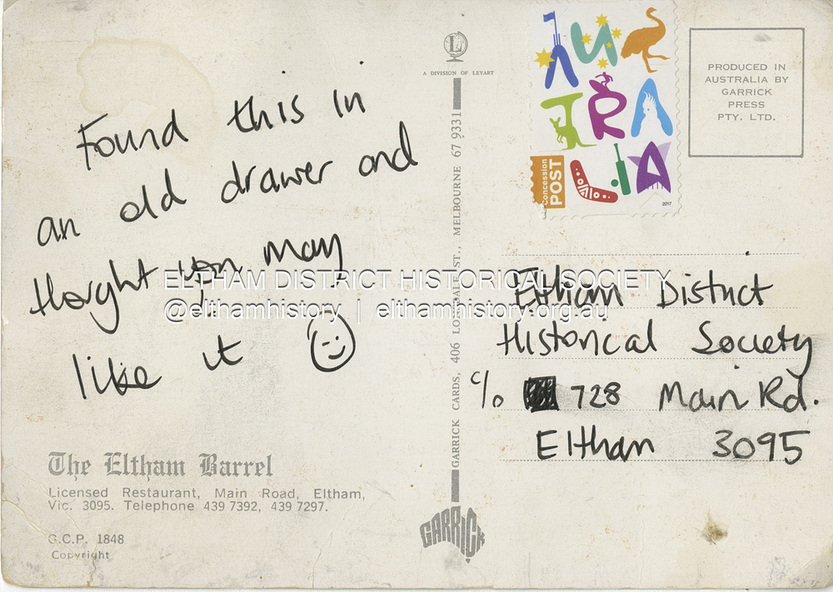 Found this in
an old drawer and
thought you may
like it
The Eltham Barrel
Licensed Restaurant, Main Road, Eltham,
Vic. 3095. Telephone 439 7392, 439 7297.
G.C.P. 1848
Copyright
L
A DIVISION OF LEVART
GARRICK CARDS, 406 LONSDALE ST., MELBOURNE 67 9331
GARRICK
AUSTRALIA
Concession
POST
2017
PRODUCED IN
AUSTRALIA BY
GARRICK
PRESS
PTY. LTD.
ELTHAM DISTRICT HISTORICAL SOCIETY
@elthamhistory | elthamhistory.org.au
Eltham District
Historical Society
c/o 728 Main Rd.
Eltham 3095